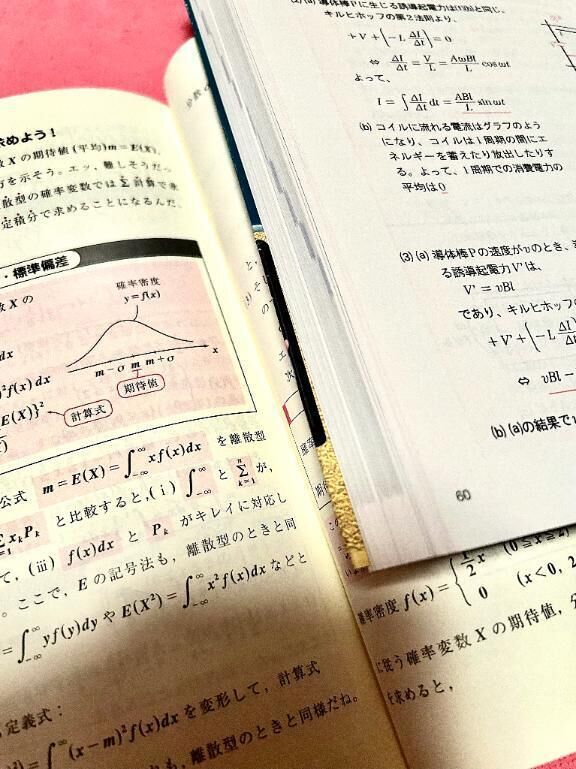 求めよう！
数Xの期待値(平均)m=E(X),
方を示そう。エッ，難しそうだっ
散型の確率変数ではΣ計算で求
定積分で求めることになるんだ。
・標準偏差
数Xの
確率密度
y=f(x)
dx
f(x)dx
E(X)}²
計算式
m-σ m m+σ x
期待値
公式 m=E(X)=∫_{-∞}^{∞} xf(x)dx を離散型
x_kP_k と比較すると，(i) ∫_{-∞}^{∞} と Σ_{k=1}^{n} が，
て，(iii) f(x)dx と P_k がキレイに対応し
。ここで，Eの記号法も，離散型のときと同
=∫_{-∞}^{∞} yf(y)dy や E(X²)=∫_{-∞}^{∞} x²f(x)dx などと
定義式：
=∫_{-∞}^{∞} (x-m)²f(x)dx を変形して，計算式
も，離散型のときと同様だね。
導体棒Pに生じる誘導起電力は(1)(b)と同じ。
キルヒホッフの第2法則より，
+V+(-L ΔI/Δt)=0
⇔ ΔI/Δt = V/L = AωBl/L cosωt
よって，
I=∫ΔI/Δt dt = ABl/L sinωt
(b) コイルに流れる電流はグラフのよう
になり、コイルは1周期の間にエ
ネルギーを蓄えたり放出したりす
る。よって、1周期での消費電力の
平均は0
(3)(a) 導体棒Pの速度がvのとき、
る誘導起電力V'は、
V'=vBl
であり、キルヒホッフ
+V'+(-L ΔI/Δt)
⇔ vBl-
(b) (a)の結果で
60
確率密度 f(x)={ 1/2 x (0≦x≦2)
0 (x<0, 2
に従う確率変数Xの期待値，分
を求めると，